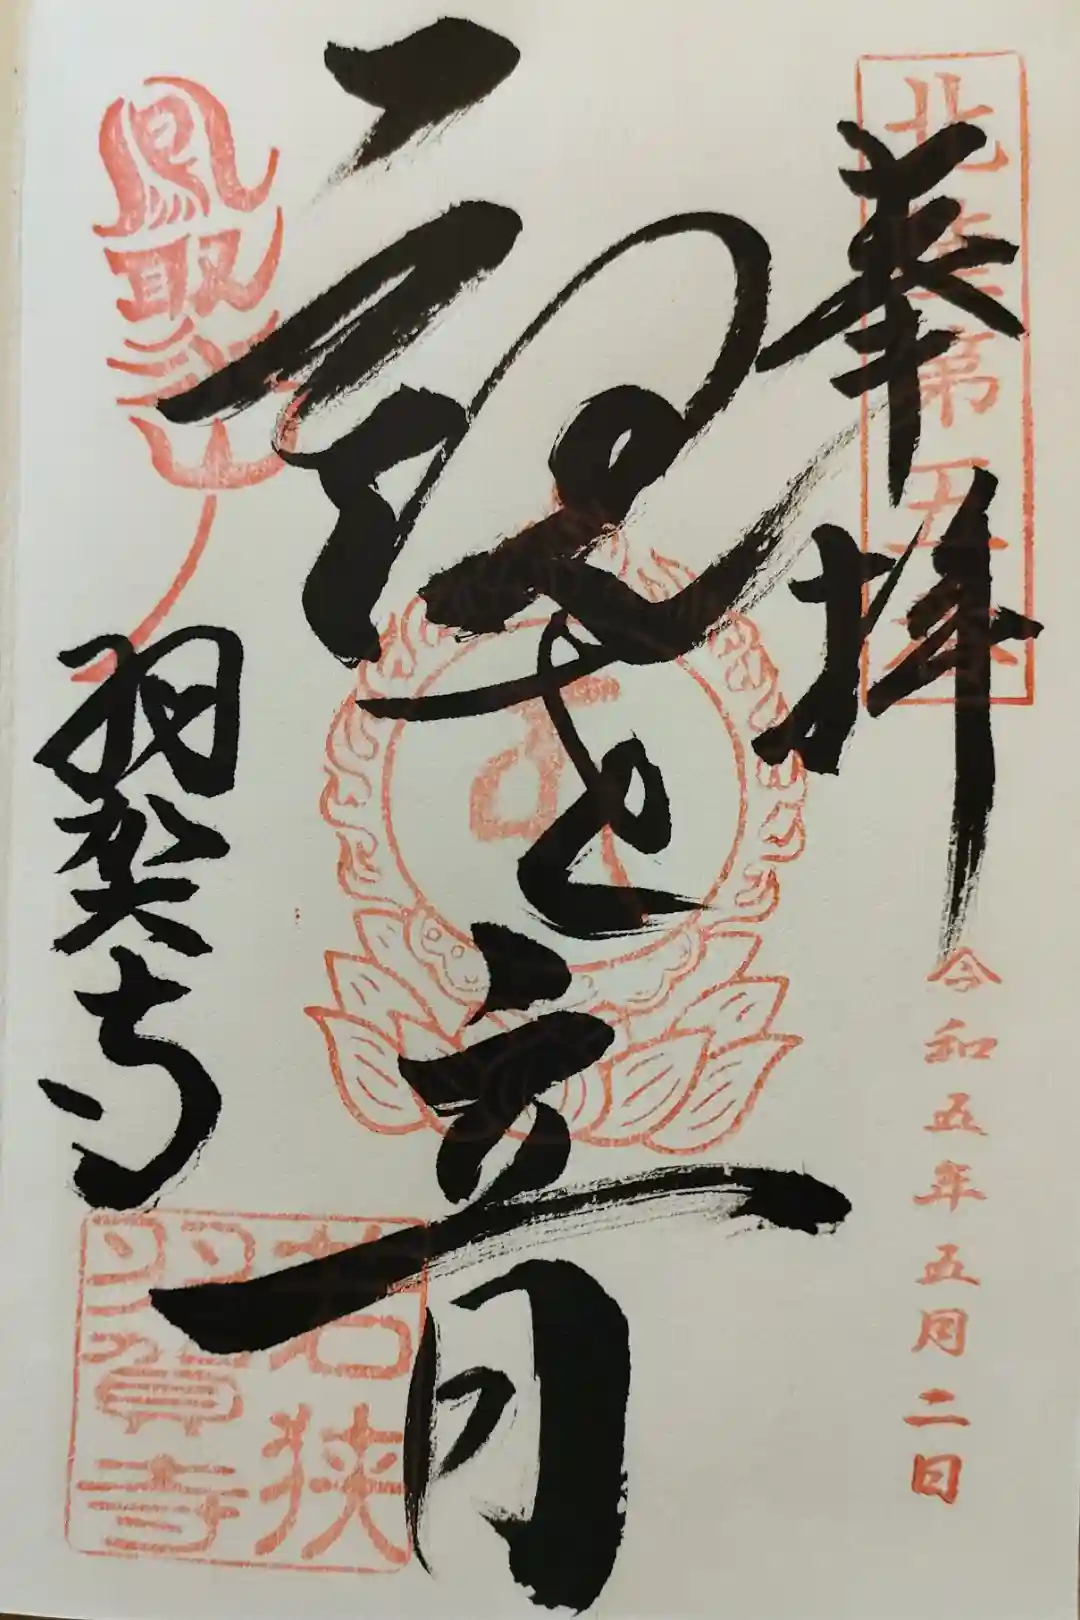 北陸第五番
奉拝
令和五年五月二日
観世音
鳳聚山
羽賀寺
若狭
羽賀寺